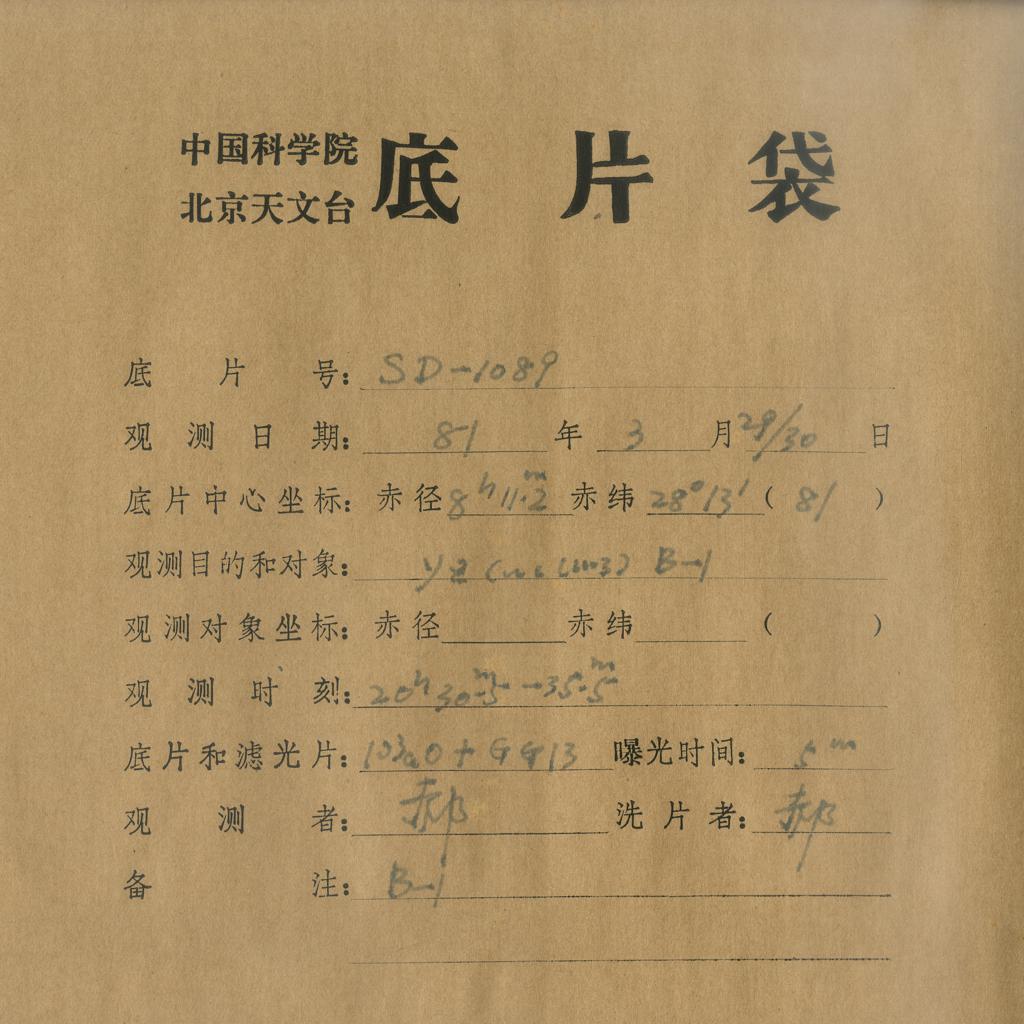 中国科学院
北京天文台
底片袋
底片号: SD-1089
观测日期: 81年 3月 29/30日
底片中心坐标: 赤径 8h11m.2 赤纬 28°13′ ( 81 )
观测目的和对象: B-1
观测对象坐标: 赤径 赤纬 ( )
观测时刻: 20h30m.5-35m.5
底片和滤光片: 103aO+GG13 曝光时间: 5m
观测者: 郝 洗片者: 郝
备注: B-1